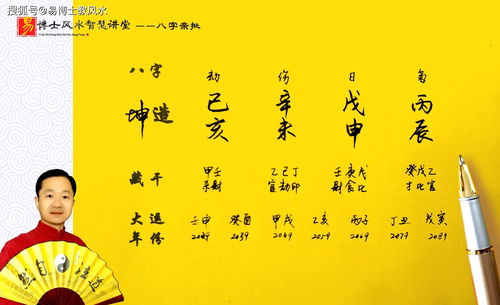 搜狐号@易博士教风水
易博士风水智慧讲堂 ——八字亲批
八字 劫 伤 日 枭
坤造 己 辛 戊 丙
亥 未 申 辰
藏干 甲壬 乙己丁 壬庚戊 癸戊乙
杀财 官劫印 财食比 才比官
大运 壬申 癸酉 甲戌 乙亥 丙子 丁丑 戊寅
年份 2029 2039 2049 2059 2069 2079 2089